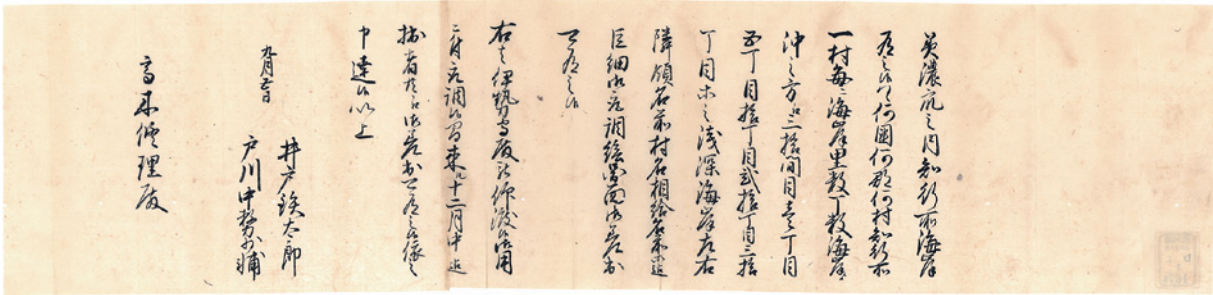 美濃殿之内知行所海岸
有之候ハヽ何國何郡何村知行所
一村毎ニ海岸里数丁数海岸ゟ
沖之方江三拾間目壱丁目
五丁目拾丁目弐拾丁目三拾
丁目出之浅深海岸左右
隣領名前村名相給名前迄
巨細御取調絵図面御差出
可有之候
右之伊勢守殿被仰渡候御用
ニ付取調候間来ル十二月中迄
拙者共江御差出可有之候依之
申達候以上
九月
井戸鉄太郎
戸川中務少輔
高木修理殿